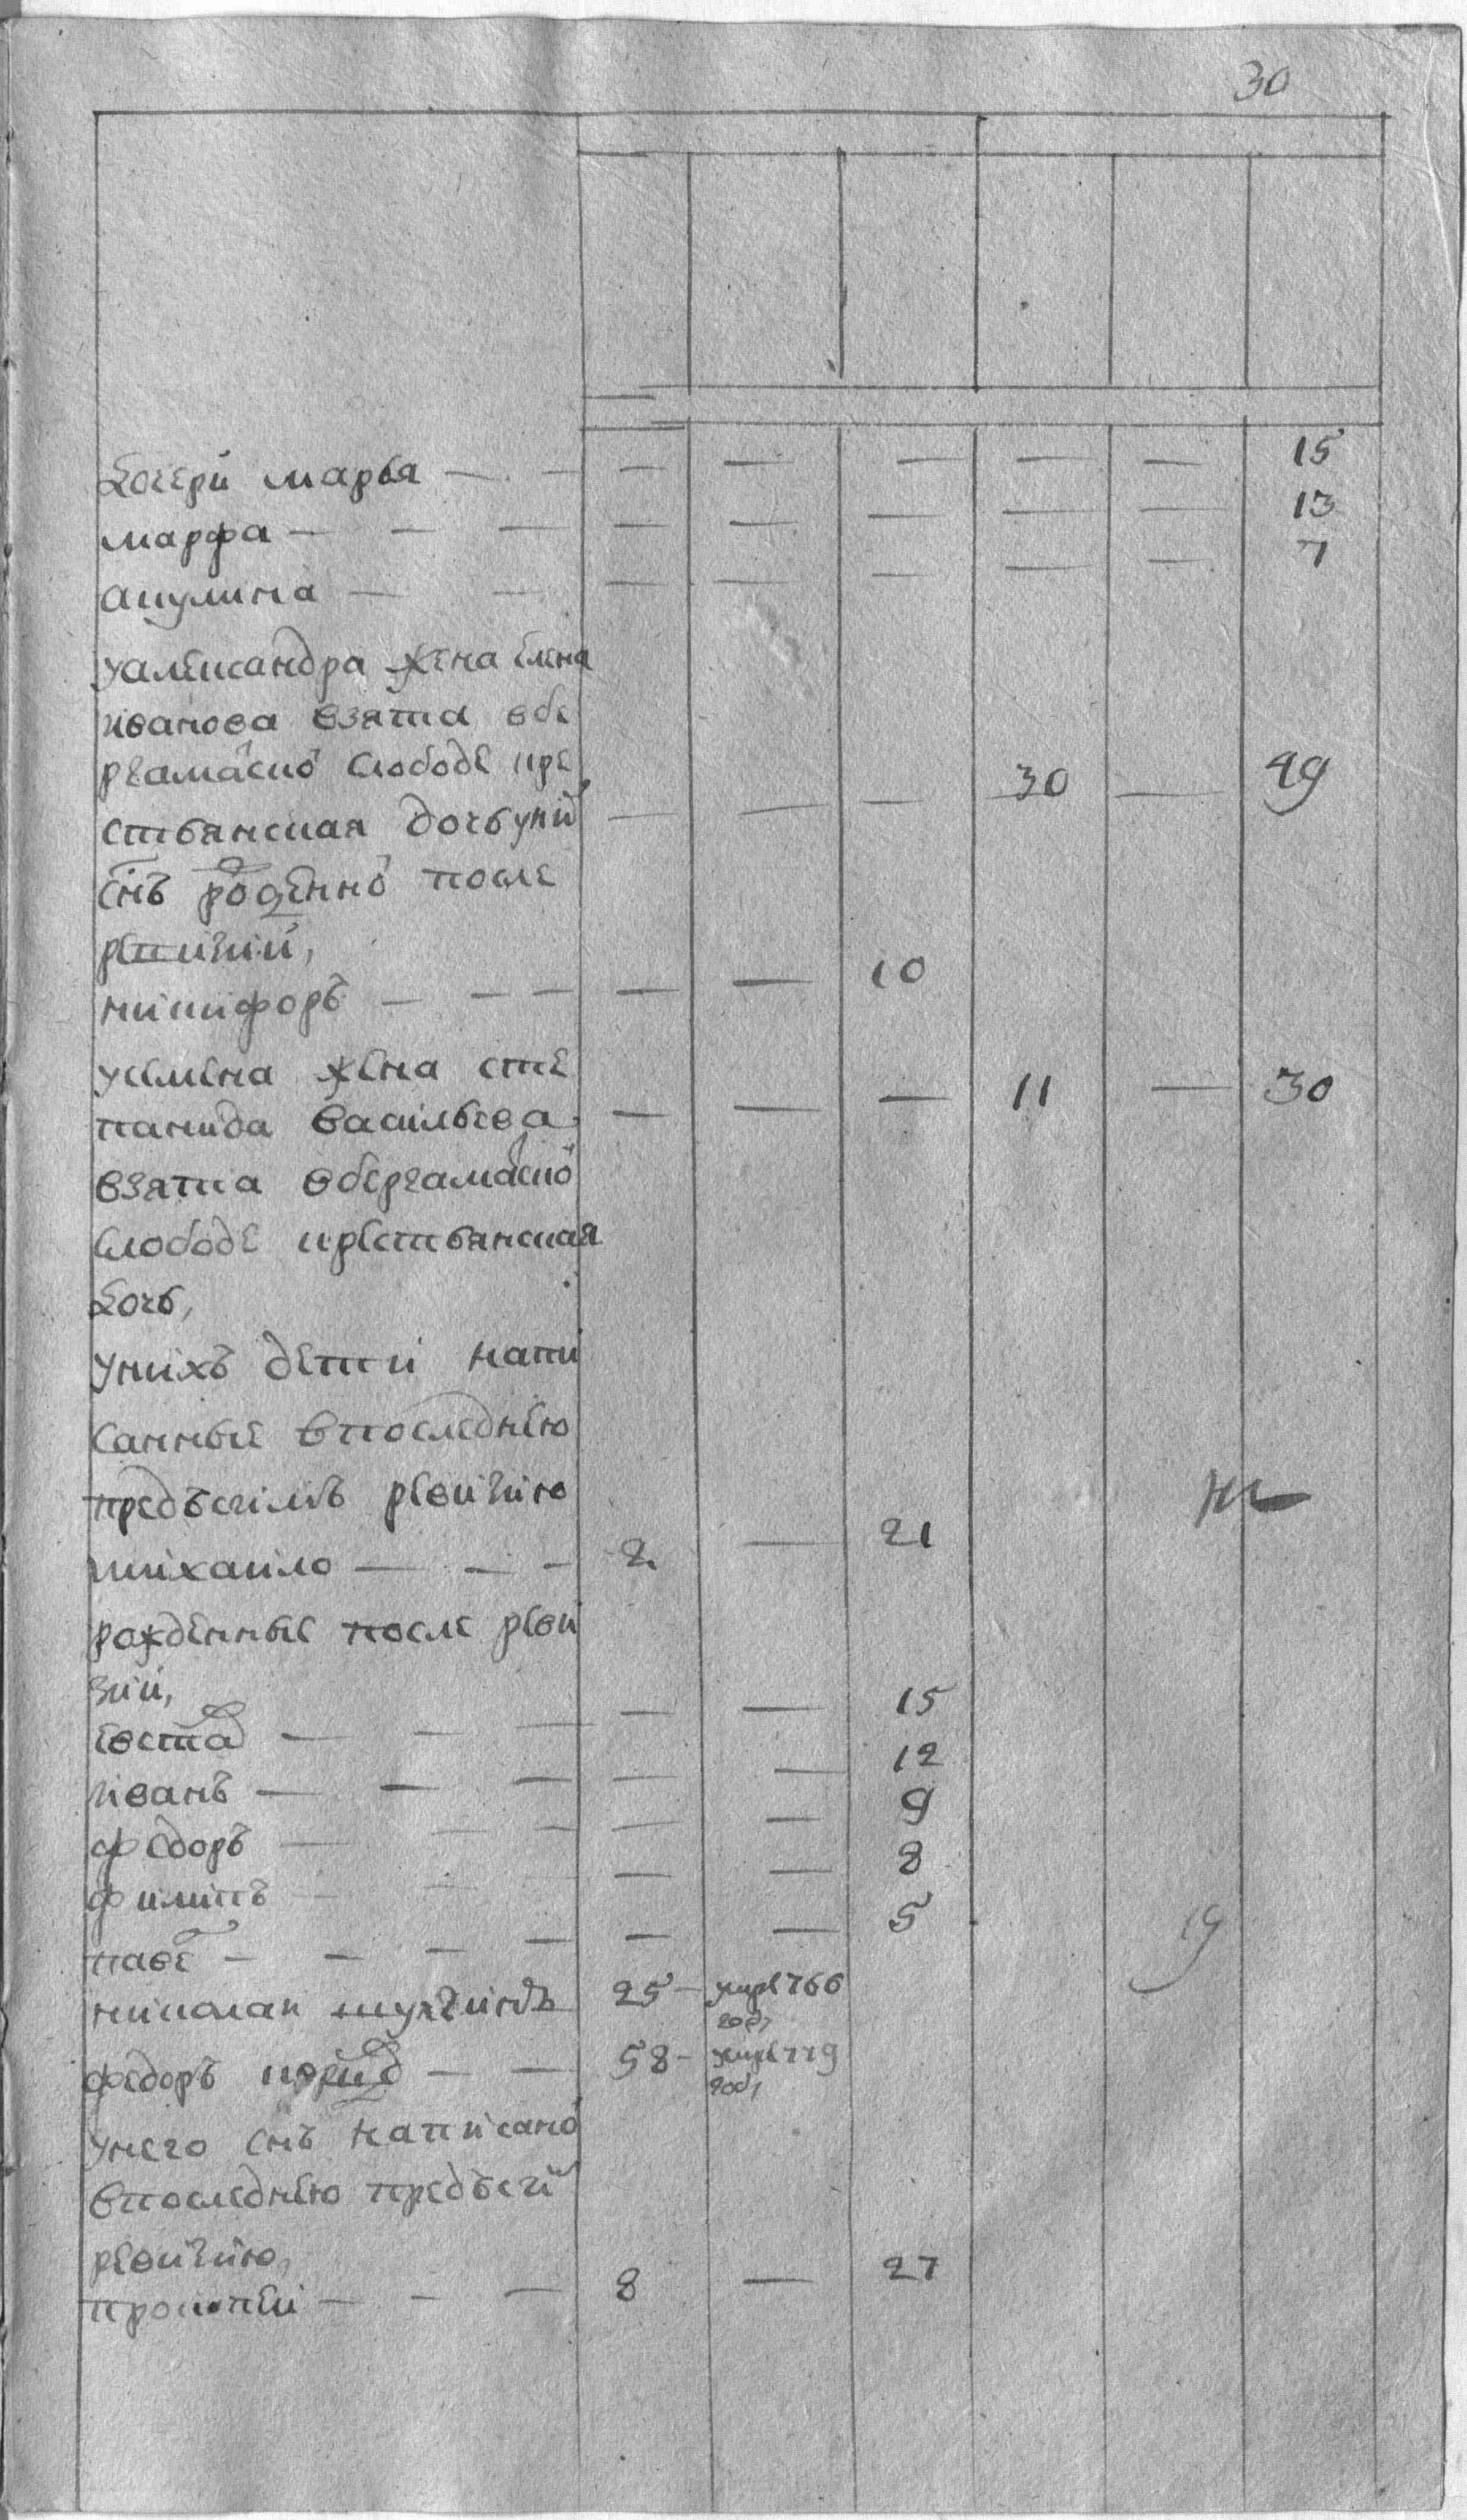 30
дочери марья — — — — — — — 15
марфа — — — — — — — — 13
акулина — — — — — — — — 7
уалександра жена елена
иванова взята вбе
ргамаско слободе кре — — — 30 — 49
стьянская дочь унй
снъ рожденно после
ревизии,
никифоръ — — — — — 10
усемена жена сте
панида васильева — — — 11 — 30
взята вбергамаско
слободе крестьянская
дочь,
унихъ дети напи
санные впоследнюю
предъсимъ ревизию
михаило — — — 2 — 21
рожденные после реви
зии,
евстаф — — — — — 15
иванъ — — — — — 12
федоръ — — — — — 9
филипъ — — — — — 8
паве — — — — — — 5
19
николаи 25 — умре 766
году
федоръ — — 58 — умре 779
году
унего снъ написано
впоследнюю предъси
ревизию,
прокопеи — — — 8 — 27